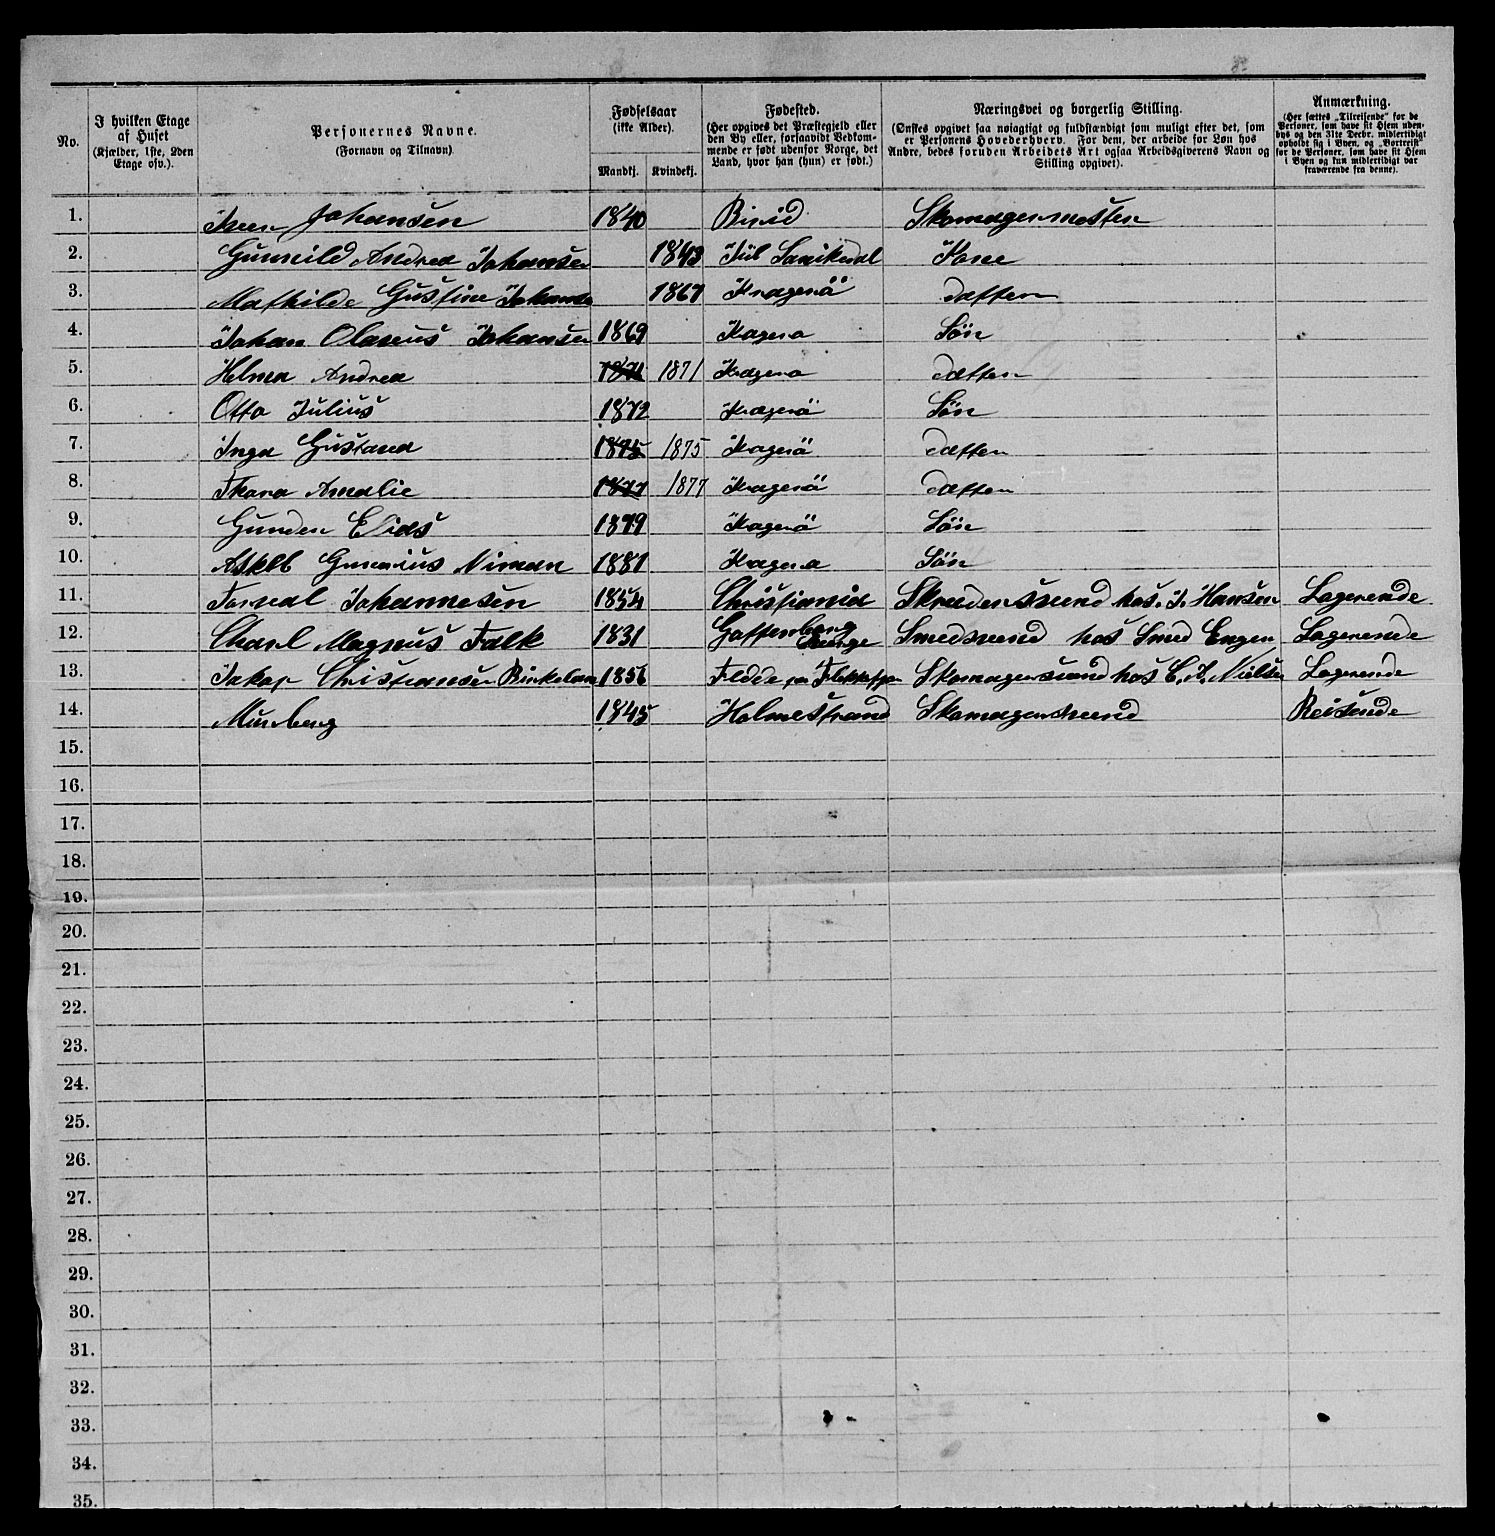 No.
I hvilken Etage af Huset (Kjælder, 1ste, 2den Etage osv.).
Personernes Navne. (Fornavn og Tilnavn)
Fødselsaar (ikke Alder). Mandkj. Kvindekj.
Fødested. (Her opgives det Præstegjeld eller den By eller, forsaavidt Vedkommende er født udenfor Norge, det Land, hvor han (hun) er født.)
Næringsvei og borgerlig Stilling. (Ønskes opgivet saa nøiagtigt og fuldstændigt som muligt efter det, som er Personens Hovederhverv. For dem, der arbeide for Løn hos Andre, bedes foruden Arbeidets Art ogsaa Arbeidsgiverens Navn og Stilling opgivet).
Anmærkning. (Her sættes „Tilreisende" for de Personer, som have sit Hjem udenbys og den 31te Decbr. midlertidigt opholdt sig i Byen, og „Bortreist" for de Personer, som have sit Hjem i Byen og kun midlertidigt var fraværende fra denne).
1. Iver Johansen 1840 Skomagermester
2. Gunnild Andrea Johansen 1843 Kone
3. Mathilde Gustine Johanse 1867 Kragerö datter
4. Johan Olaveus Johansen 1869 Kagerø Sön
5. Helma Andrea 1871 1871 Kragerø datter
6. Otto Julius 1872 Kragerö Sön
7. Inga Gustava 1875 1875 Kagerö datter
8. Thora Amalie 1877 1877 Kragerö datter
9. Gunder Elias 1879 Kragerö Sön
10. Gunerius Niman 1881 Kragerø Sön
11. Torval Johannesen 1854 Christiania Skredersvend hos. J. Hansen Logerende
12. Charl Magnus Falk 1831 Gottenborg Sverge Smedsvend hos Smed Engen Logerende
13. Jakop Christiansen 1856 Skomagersvand hos C. J. Nielsen Logerende
14. Munberg 1845 Holmestrand Skomagersvend Reisende
15.
16.
17.
18.
19.
20.
21.
22.
23.
24.
25.
26.
27.
28.
29.
30.
31.
32.
33.
34.
35.